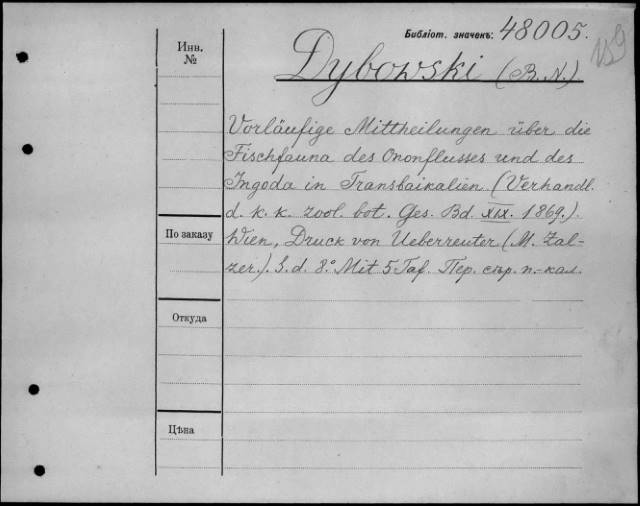 Библіот. значекъ: 48005.
Инв.
№
Dybowski (B. N.)
Vorläufige Mittheilungen über die
Fischfauna des Ononflusses und des
Ingoda in Transbaikalien (Verhandl.
d. k. k. zool. bot. Ges. Bd. XIX. 1869.).
Wien, Druck von Ueberreuter (M. Zal-
zer). S. d. 8.° Mit 5 Taf. Пер. стр. п.-кал.
По заказу
Откуда
Цѣна